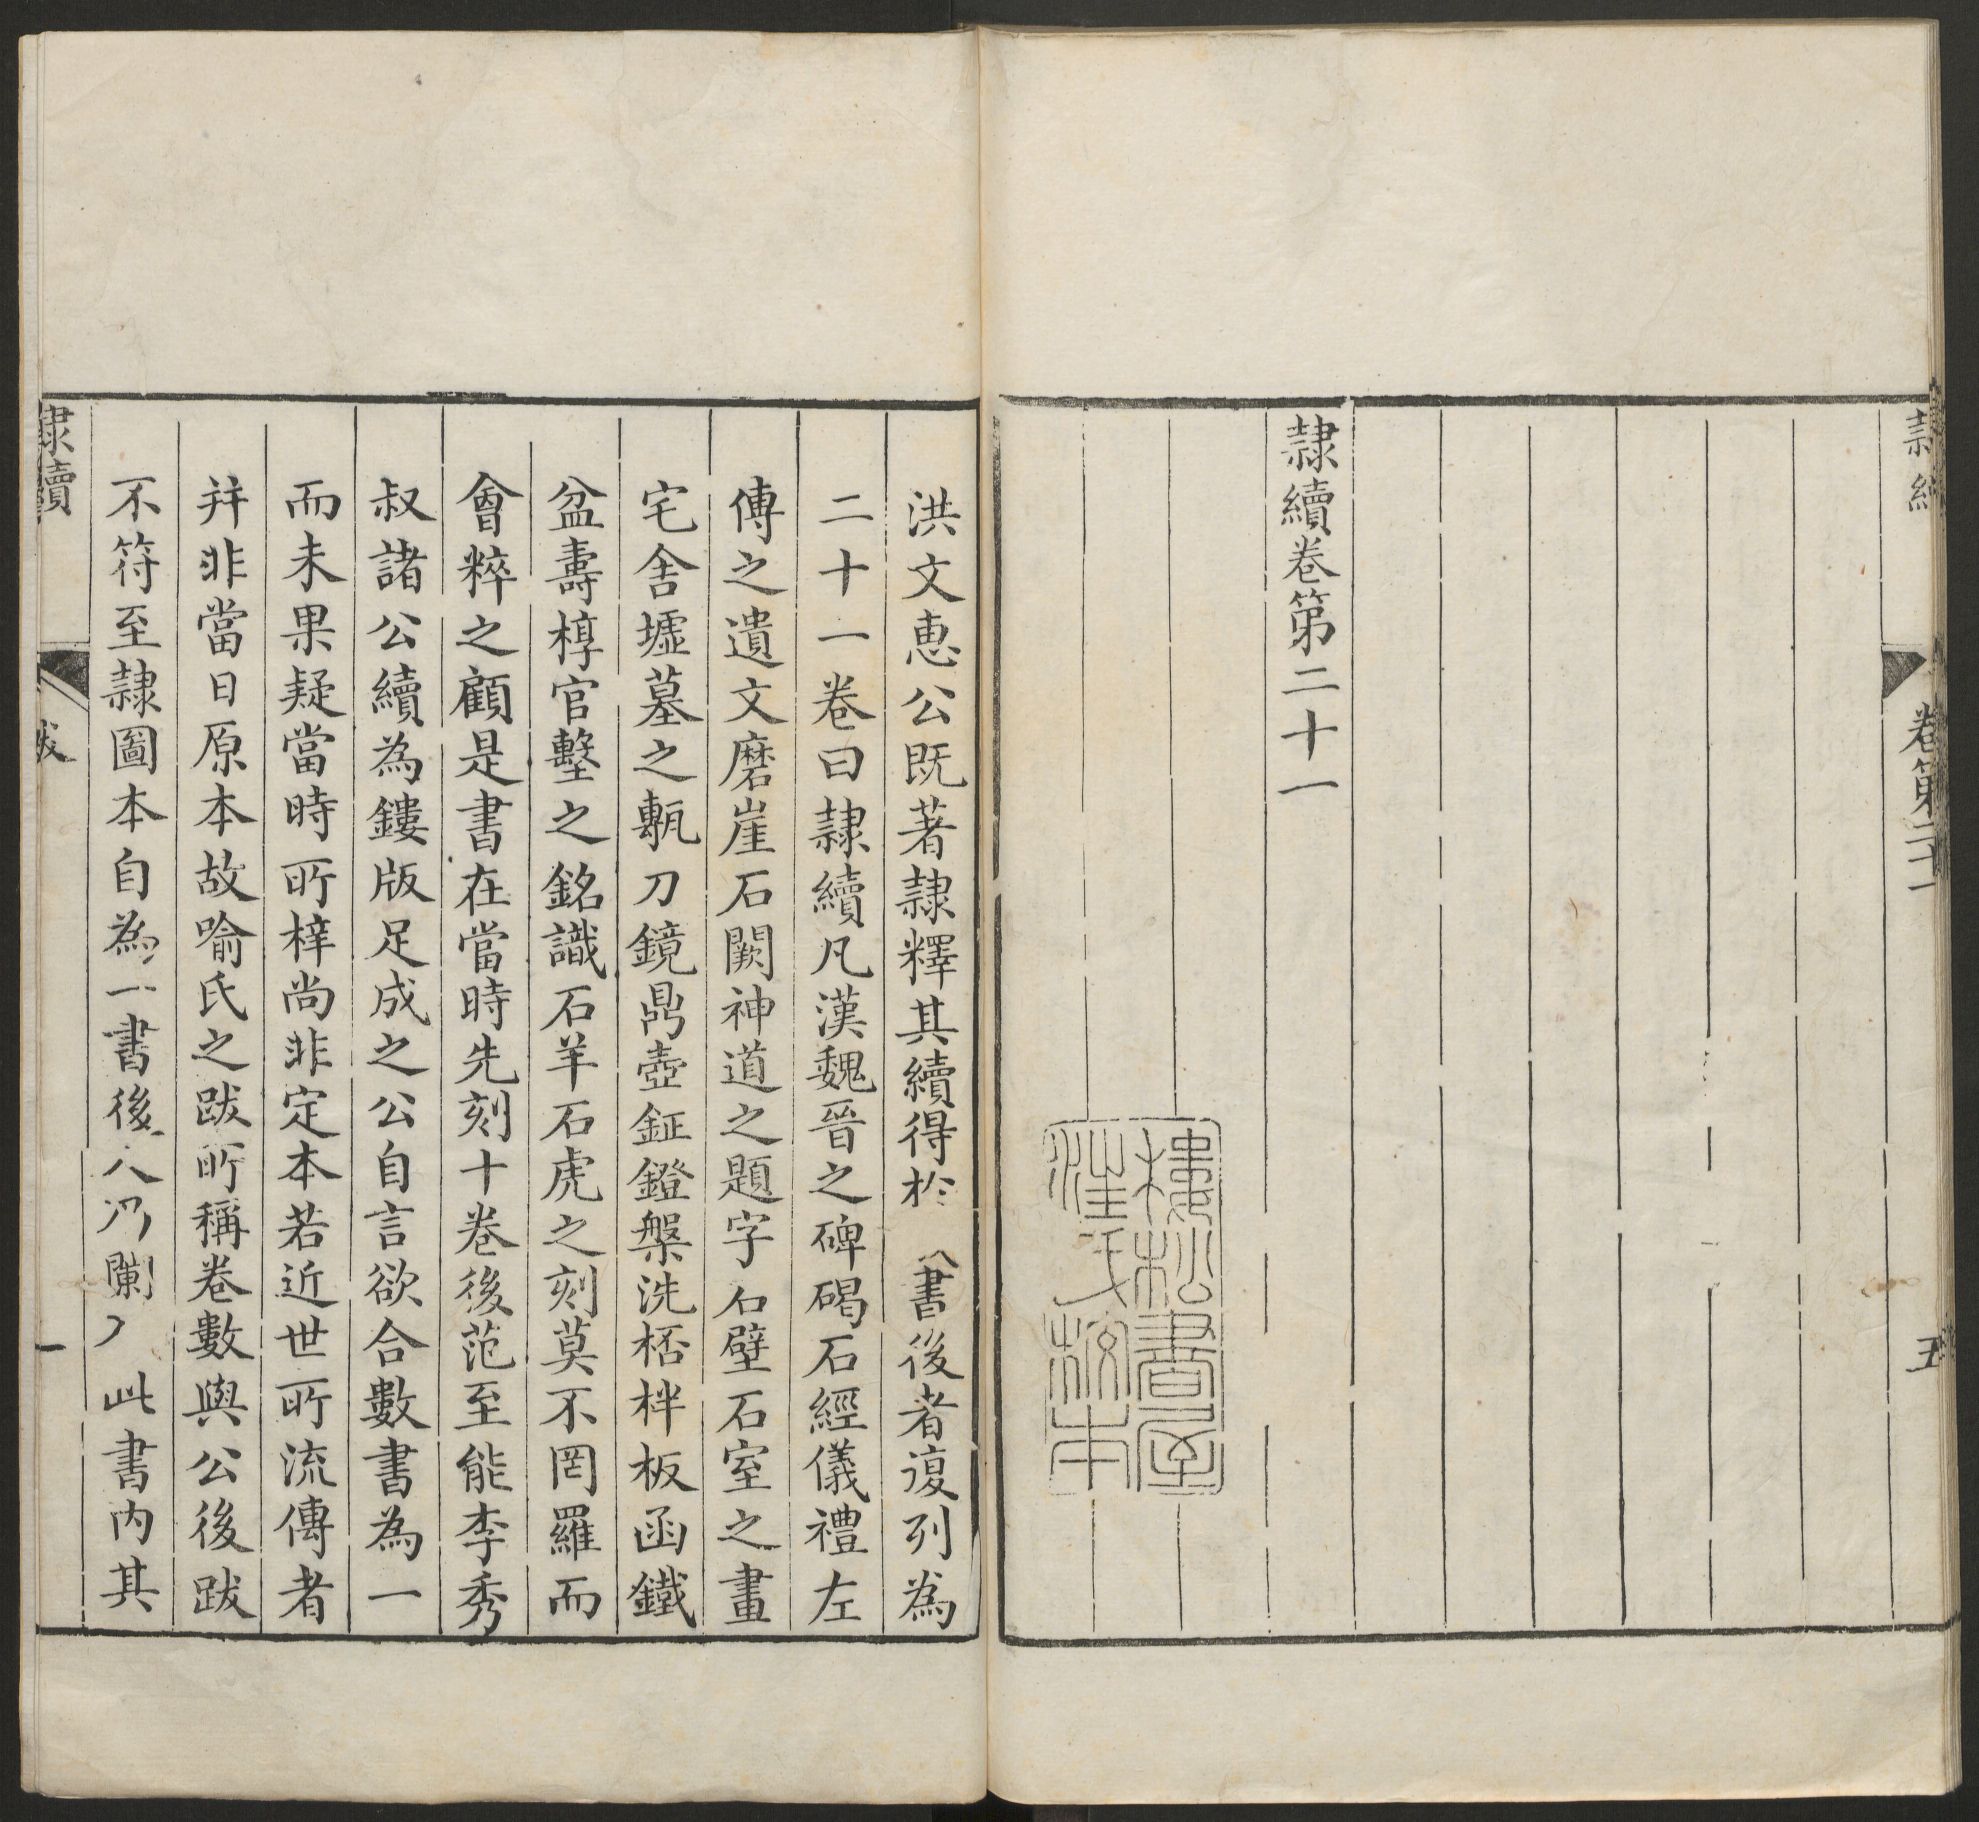 隷續
卷第二十一
五
隷續卷第二十一
樓松書屋
汪氏校本
洪文惠公既著隷釋其續得於書後者復列為
二十一卷曰隷續凡漢魏晉之碑碣石經儀禮左
傳之遺文磨崖石闕神道之題字石壁石室之畫
宅舍墟墓之甎刀鏡鼎壺鉦鐙槃洗桮柈板函鐵
盆壽椁官墼之銘識石羊石虎之刻莫不罔羅而
會粹之顧是書在當時先刻十卷後范至能李秀
叔諸公續為鏤版足成之公自言欲合數書為一
而未果疑當時所梓尚非定本若近世所流傳者
并非當日原本故喻氏之跋所稱卷數與公後跋
不符至隷圖本自為一書後人乃闌入此書內其
隷續
跋
一